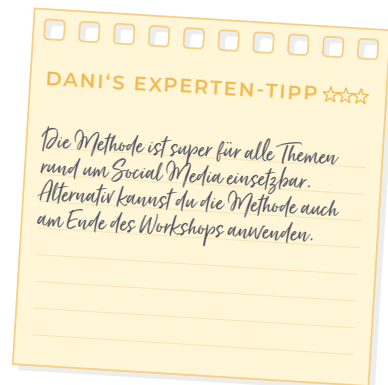 DANI'S EXPERTEN-TIPP
Die Methode ist super für alle Themen
rund um Social Media einsetzbar.
Alternativ kannst du die Methode auch
am Ende des Workshops anwenden.